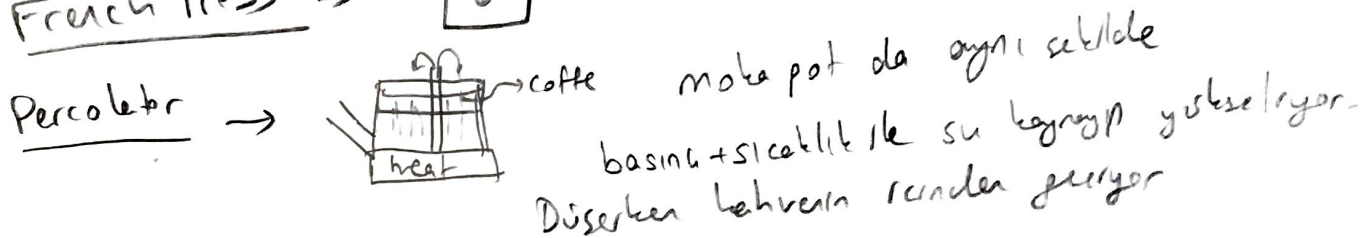 French Press
Percolator → coffe
heat
moka pot da aynı şekilde
basınç+sıcaklık ile su kaynayıp yükseliyor.
Düşerken kahvenin içinden geçiyor